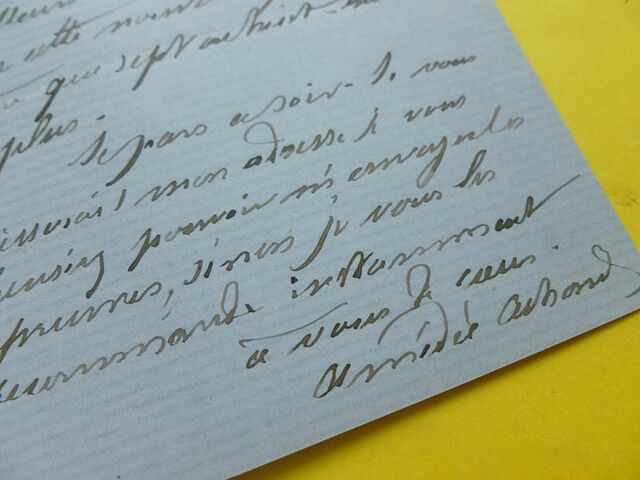 cette
que sept ou huit
plus.
Je pars ce soir. Je vous
mon adresse si vous
pouvoir m'envoyer les
épreuves, sinon je vous les
recommande instamment
à vous de cœur.
Amédée Achard